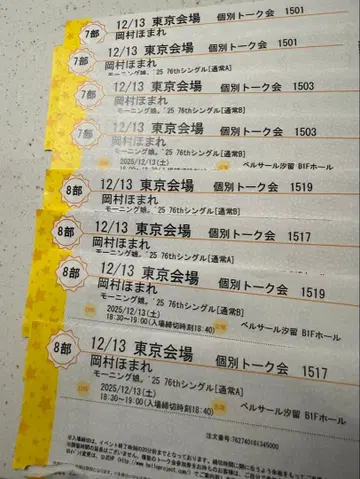 7部
12/13 東京会場 個別トーク会 1501
岡村ほまれ
7部
12/13 東京会場 個別トーク会 1501
岡村ほまれ
モーニング娘。'25 76thシングル[通常A]
7部
12/13 東京会場 個別トーク会 1503
岡村ほまれ
モーニング娘。'25 76thシングル[通常B]
7部
12/13 東京会場 個別トーク会 1503
岡村ほまれ
モーニング娘。'25 76thシングル[通常B]
2025/12/13(土) ベルサール汐留 B1Fホール
8部
12/13 東京会場 個別トーク会 1519
岡村ほまれ
モーニング娘。'25 76thシングル[通常B]
8部
12/13 東京会場 個別トーク会 1517
岡村ほまれ
モーニング娘。'25 76thシングル[通常A]
8部
12/13 東京会場 個別トーク会 1519
岡村ほまれ
モーニング娘。'25 76thシングル[通常B]
日時 2025/12/13(土) 会場 ベルサール汐留 B1Fホール
18:30~19:00(入場締切時刻18:40)
8部
12/13 東京会場 個別トーク会 1517
岡村ほまれ
モーニング娘。'25 76thシングル[通常A]
日時 2025/12/13(土) 会場 ベルサール汐留 B1Fホール
18:30~19:00(入場締切時刻18:40)
注文番号:762740161345000